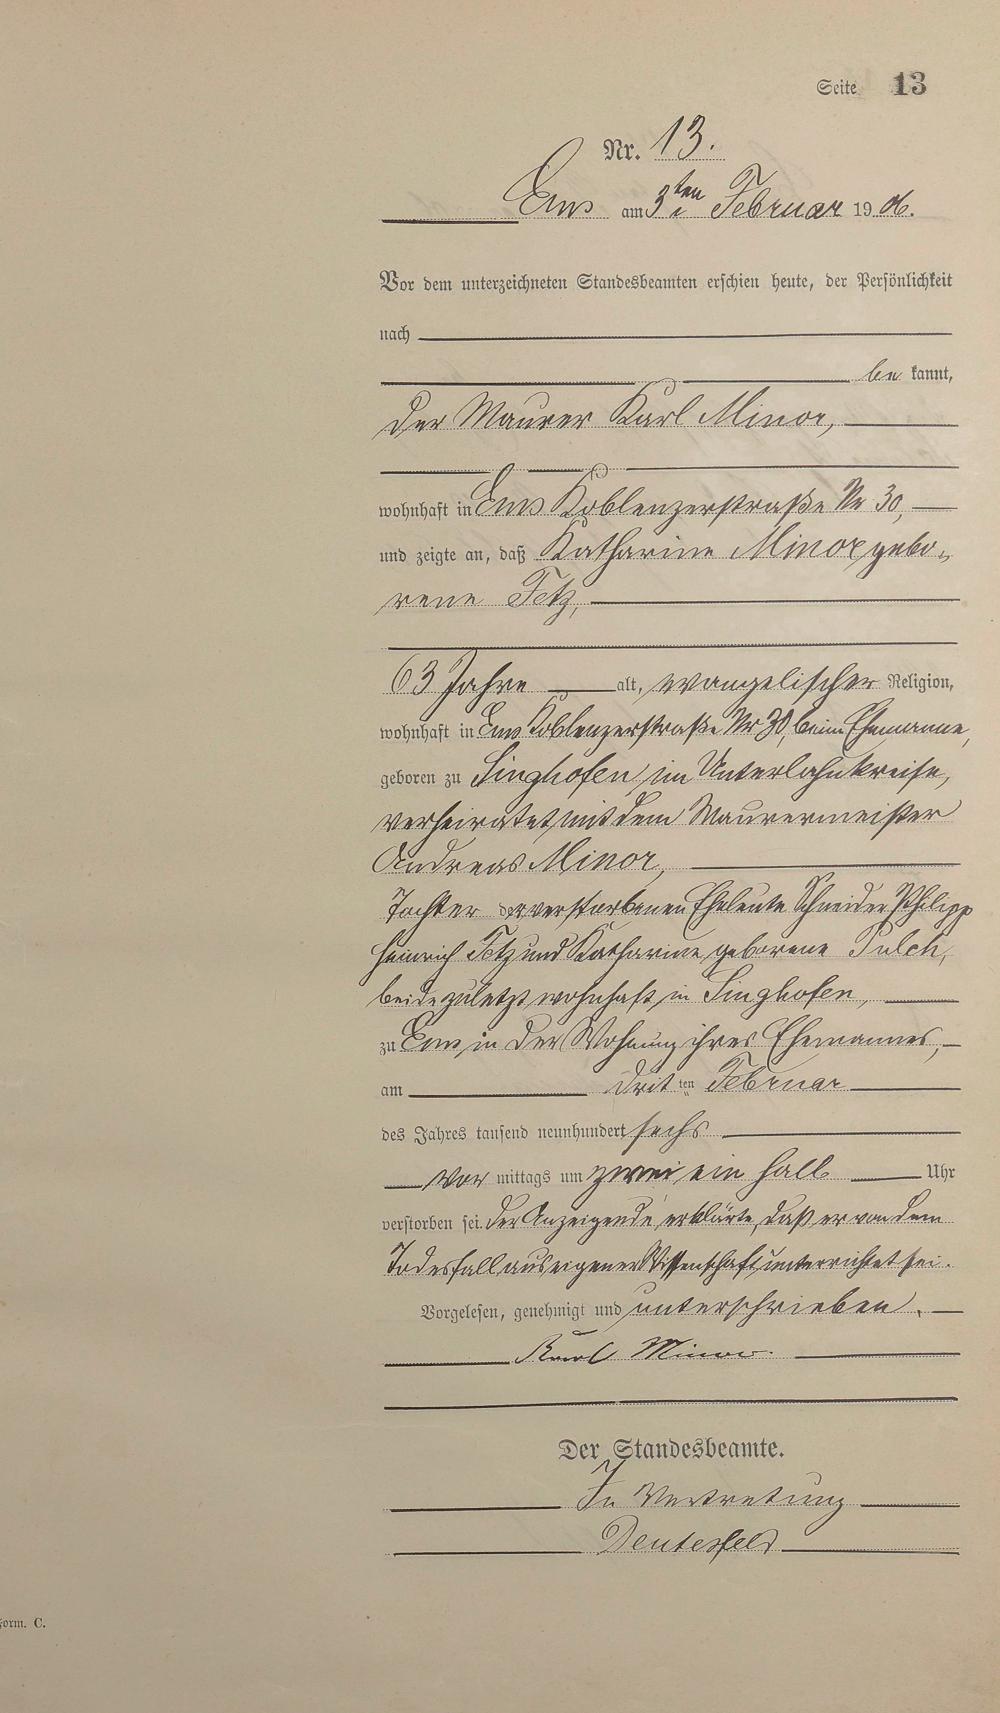 Seite 13
Nr. 13.
Ems am 3ten Februar 1906.
Vor dem unterzeichneten Standesbeamten erschien heute, der Persönlichkeit
nach
be kannt,
der Maurer Karl Minor,
wohnhaft in Ems Koblenzerstraße Nr 30,
und zeigte an, daß Katharine Minor gebo-
rene Fetz,
63 Jahre alt, evangelischer Religion,
wohnhaft in Ems Koblenzerstraße Nr 30, beim Ehemanne,
geboren zu Singhofen, im Unterlahnkreise,
verheiratet mit dem Maurermeister
Andreas Minor,
Tochter der verstorbenen Eheleute Schneider Philipp
Heinrich Fetz und Katharine geborene Pulch,
beide zuletzt wohnhaft in Singhofen,
zu Ems, in der Wohnung ihres Ehemannes,
am dritten Februar
des Jahres tausend neunhundert sechs
Vor mittags um zwei ein halb Uhr
verstorben sei. Der Anzeigende erklärte, daß er von dem
Todesfall aus eigener Wissenschaft unterrichtet sei.
Vorgelesen, genehmigt und unterschrieben.
Karl Minor.
Der Standesbeamte.
In Vertretung
Deutesfeld
Form. C.